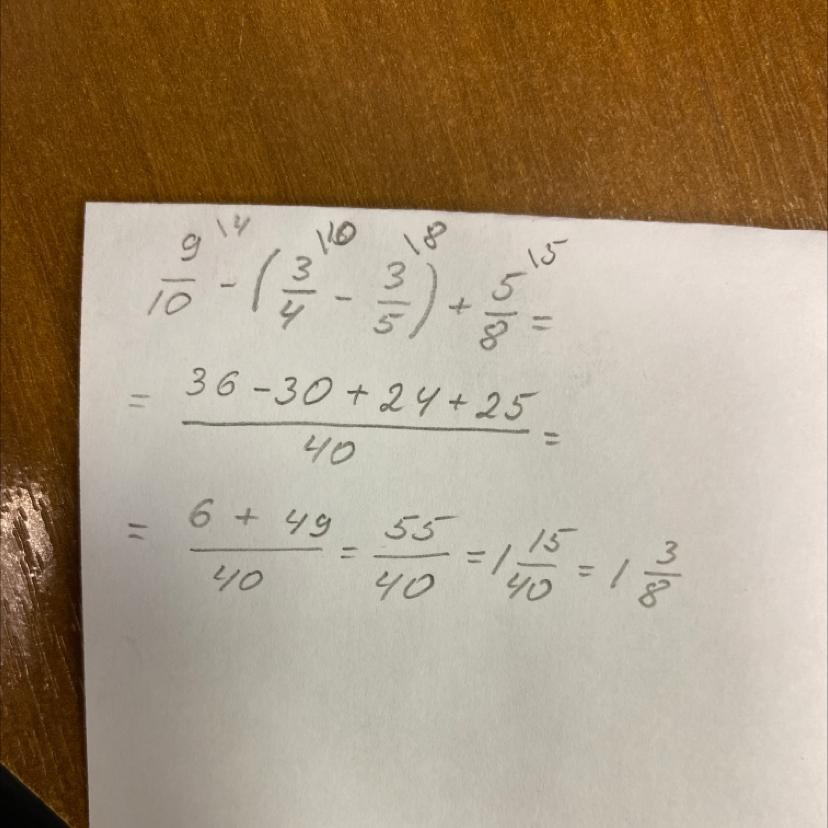 9/10\4 - (3/4\10 - 3/5\8) + 5/8\5 =
= (36 - 30 + 24 + 25)/40 =
= (6 + 49)/40 = 55/40 = 1 15/40 = 1 3/8